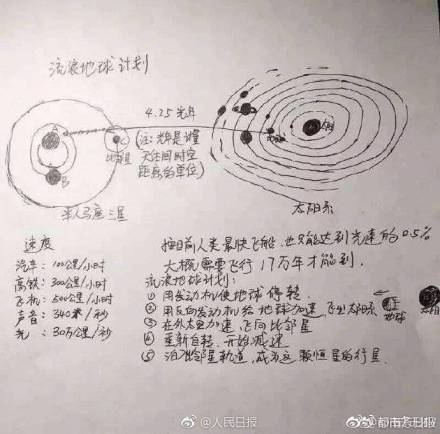 流浪地球计划
4.25光年
(注:光年是计量
天体间时空
距离的单位)
A
B
C
比邻星
地球
太阳
半人马座三星
太阳系
速度
汽车:100公里/小时
高铁:300公里/小时
飞机:500公里/小时
声音:340米/秒
光:30万公里/秒
按目前人类最快飞船,也只能达到光速的0.5%
大概需要飞行17万年才能到.
流浪地球计划:
① 用发动机使地球停转.
② 用反向发动机给地球加速 飞出太阳系
③ 在外太空加速,飞向比邻星
④ 重新自转,开始减速
⑤ 泊准邻星轨道,成为这颗恒星的行星.
地球
@人民日报